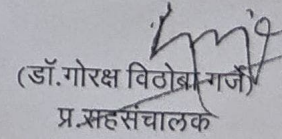 (डॉ.गोरक्ष विठोबा गर्जे)
प्र.सहसंचालक